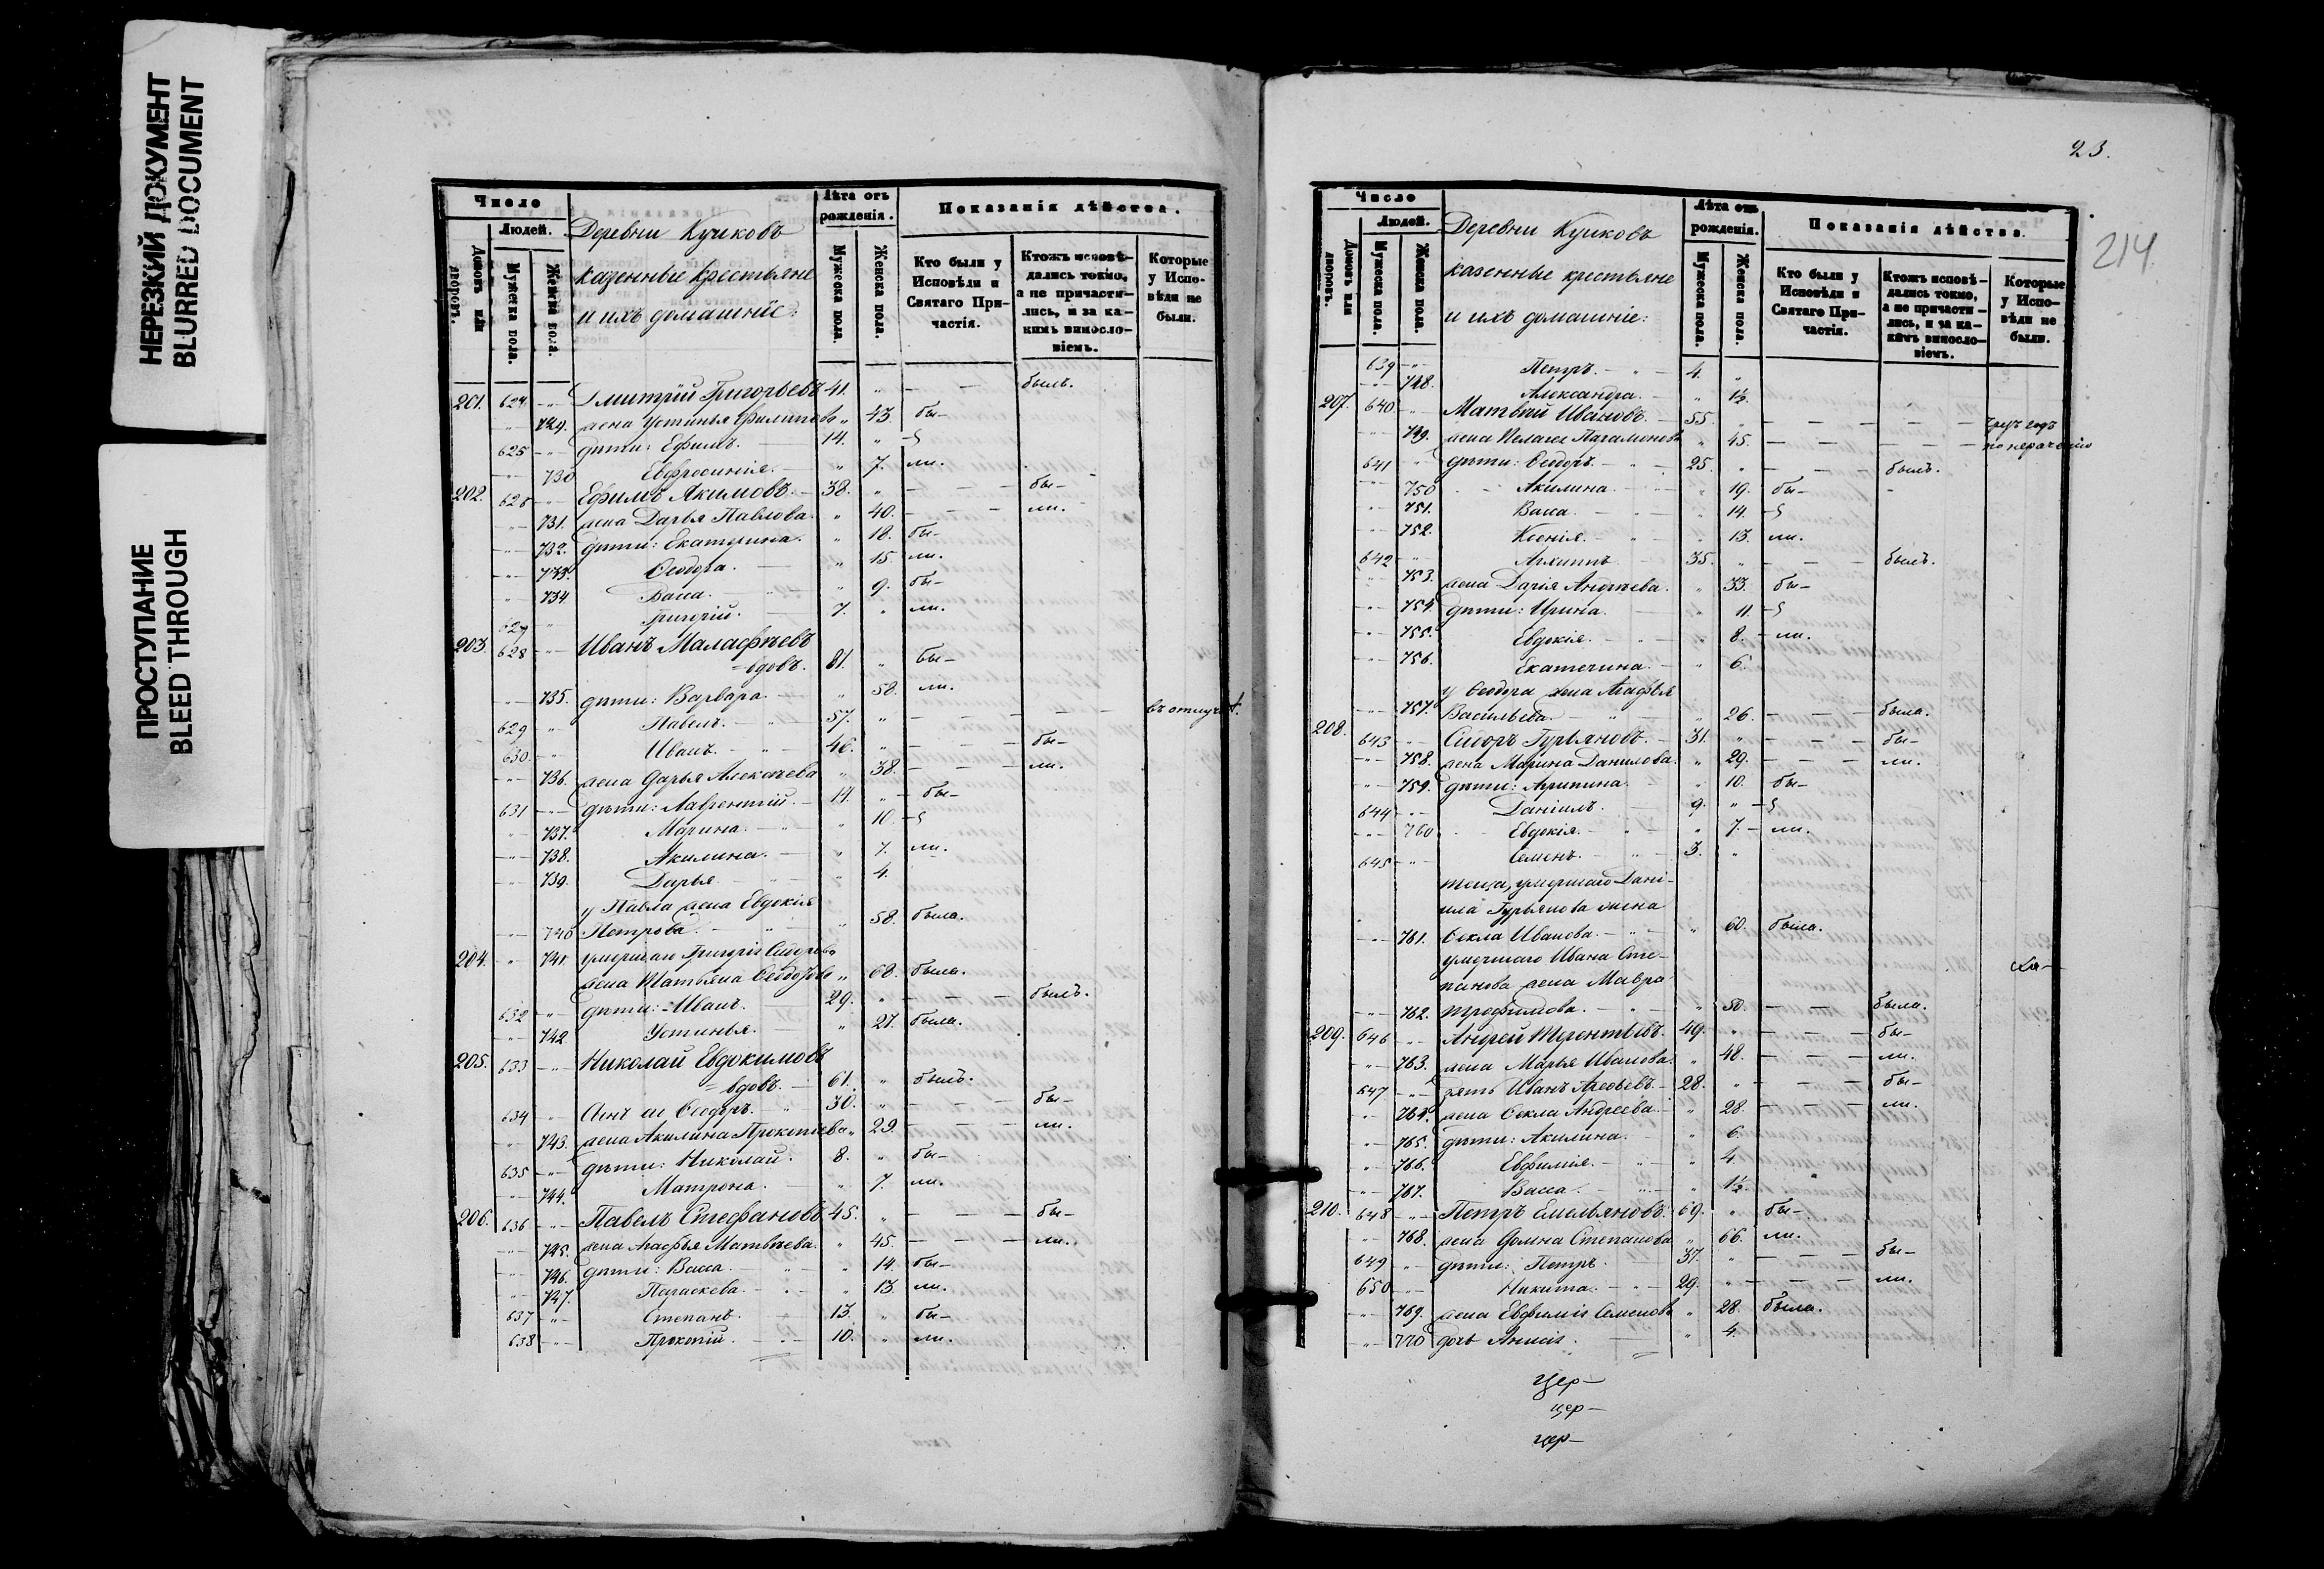 НЕРЕЗКИЙ ДОКУМЕНТ
BLURRED DOCUMENT
ПРОСТУПАНИЕ
BLEED THROUGH
Число
Людей.
Домовъ или дворовъ.
Мужеска пола.
Женска пола.
Деревни Кучковъ
казенные крестьяне
и ихъ домашніе:
Лѣта отъ рожденія.
Мужеска пола.
Женска пола.
Показанія дѣйства.
Кто были у Исповѣди и Святаго Причастія.
Ктожъ исповѣдались токмо, а не причастились, и за какимъ винословіемъ.
Которые у Исповѣди не были.
201. 624 -"- Дмитрій Григорьевъ 41. " — — былъ.
-"- 729. жена Устинья Филипова " 43. бы-
625 -"- дѣти: Ефимъ. 14. "
-"- 730 Евфросинія. " 7. ли.
202. 626 -"- Ефимъ Якимовъ. 38. " — — — бы-
-"- 731. жена Дарья Павлова. " 40. — — — ли.
-"- 732. дѣти: Екатерина. " 18. бы-
-"- 733. Ѳеодора. " 15. ли.
-"- 734. Васса. " 9. бы-
627 -"- Григорій. 7. " ли.
203. 628 -"- Иванъ Малафѣевъ
вдовъ. 81. " бы-
-"- 735. дѣти: Варвара. " 58. ли.
629 -"- Павелъ. 57. " — — — — въ отлучкѣ.
630 -"- Иванъ. 46. " — — — бы-
-"- 736. жена Дарья Алексѣева " 38. — — — ли.
631 -"- дѣти: Лаврентій. 14. " бы-
-"- 737. Марина. " 10.
-"- 738. Акилина. " 7. ли.
-"- 739. Дарья. " 4.
у Павла жена Евдокія
-"- 740 Петрова. " 58. была.
204. " 741. умершаго Григорія Сидорова
жена Татьяна Ѳеодорова " 68. была.
632 -"- дѣти: Иванъ. 29. " — — — былъ.
-"- 742 Устинья. " 27. была.
205. 633 -"- Николай Евдокимовъ
вдовъ. 61. " былъ.
634 -"- Сынъ его Ѳеодоръ. 30. " — — — бы-
-"- 743. жена Акилина Прокопіева " 29. — — — ли.
635 -"- дѣти: Николай. 8. " бы-
-"- 744. Матрона. " 7. ли.
206. 636 -"- Павелъ Стефановъ 45. " — — — бы-
-"- 745. жена Агафья Матвѣева. " 45. — — — ли.
-"- 746. дѣти: Васса. " 14. бы-
-"- 747. Параскева. " 13. ли.
637 -"- Степанъ. 13. " бы-
638 -"- Прокопій. 10. " ли.
23.
214
Число
Людей.
Домовъ или дворовъ.
Мужеска пола.
Женска пола.
Деревни Кучковъ
казенные крестьяне
и ихъ домашніе:
Лѣта отъ рожденія.
Мужеска пола.
Женска пола.
Показанія дѣйства.
Кто были у Исповѣди и Святаго Причастія.
Ктожъ исповѣдались токмо, а не причастились, и за какимъ винословіемъ.
Которые у Исповѣди не были.
639 -"- Петръ. 4. "
-"- 748. Александра. " 1½.
207. 640 -"- Матвѣй Ивановъ. 55. " — — — — — годъ
-"- 749. жена Пелагея " 45. — — — — — по нераченію
641 -"- дѣти: Ѳеодоръ. 25. " — — былъ.
-"- 750 Акилина. " 19. бы-
-"- 751. Васса. " 14.
-"- 752. Ксенія. " 13. ли.
642 -"- Архипъ. 35. " — — былъ.
-"- 753. жена Дарія Андреева. " 33. бы-
-"- 754. дѣти: Ирина. " 11
-"- 755. Евдокія. " 8. ли.
-"- 756. Екатерина. " 6.
у Ѳеодора жена Агафья
-"- 757. Васильева. " 26. — — — была.
208. 643 -"- Сидоръ Гурьяновъ. 31. " — — — бы-
-"- 758. жена Марина Данилова. " 29. — — — ли.
-"- 759. дѣти: Агрипина. " 10. бы-
644 -"- Даніилъ. 9. "
-"- 760 Евдокія. " 7. ли.
645 -"- Семенъ. 3. "
теща, умершаго Дані-
ила Гурьянова жена
-"- 761. Ѳекла Иванова. " 60. была.
умершаго Ивана Сте-
панова жена Мавра
-"- 762. Трофимова. " 50. — — была.
209. 646 -"- Андрей Терентьевъ. 49. " — — — бы-
-"- 763. жена Марья Иванова. " 48. — — — ли.
647 -"- зять Иванъ 28. " — — — бы-
-"- 764. жена Ѳекла Андреева. " 28. — — — ли.
-"- 765. дѣти: Акилина. " 6.
-"- 766. Евфимія. " 4.
-"- 767. Васса. " 1½.
210. 648 -"- Петръ Емельяновъ. 69. " бы-
-"- 768. жена Домна Степанова " 66. ли.
649 -"- дѣти: Петръ. 37. " — — — бы-
650 -"- Никита. 29. " — — — ли.
-"- 769. жена Евфимія Семенова " 28. была.
-"- 770 дочь Анисія. " 4.
цер-
цер-
цер-